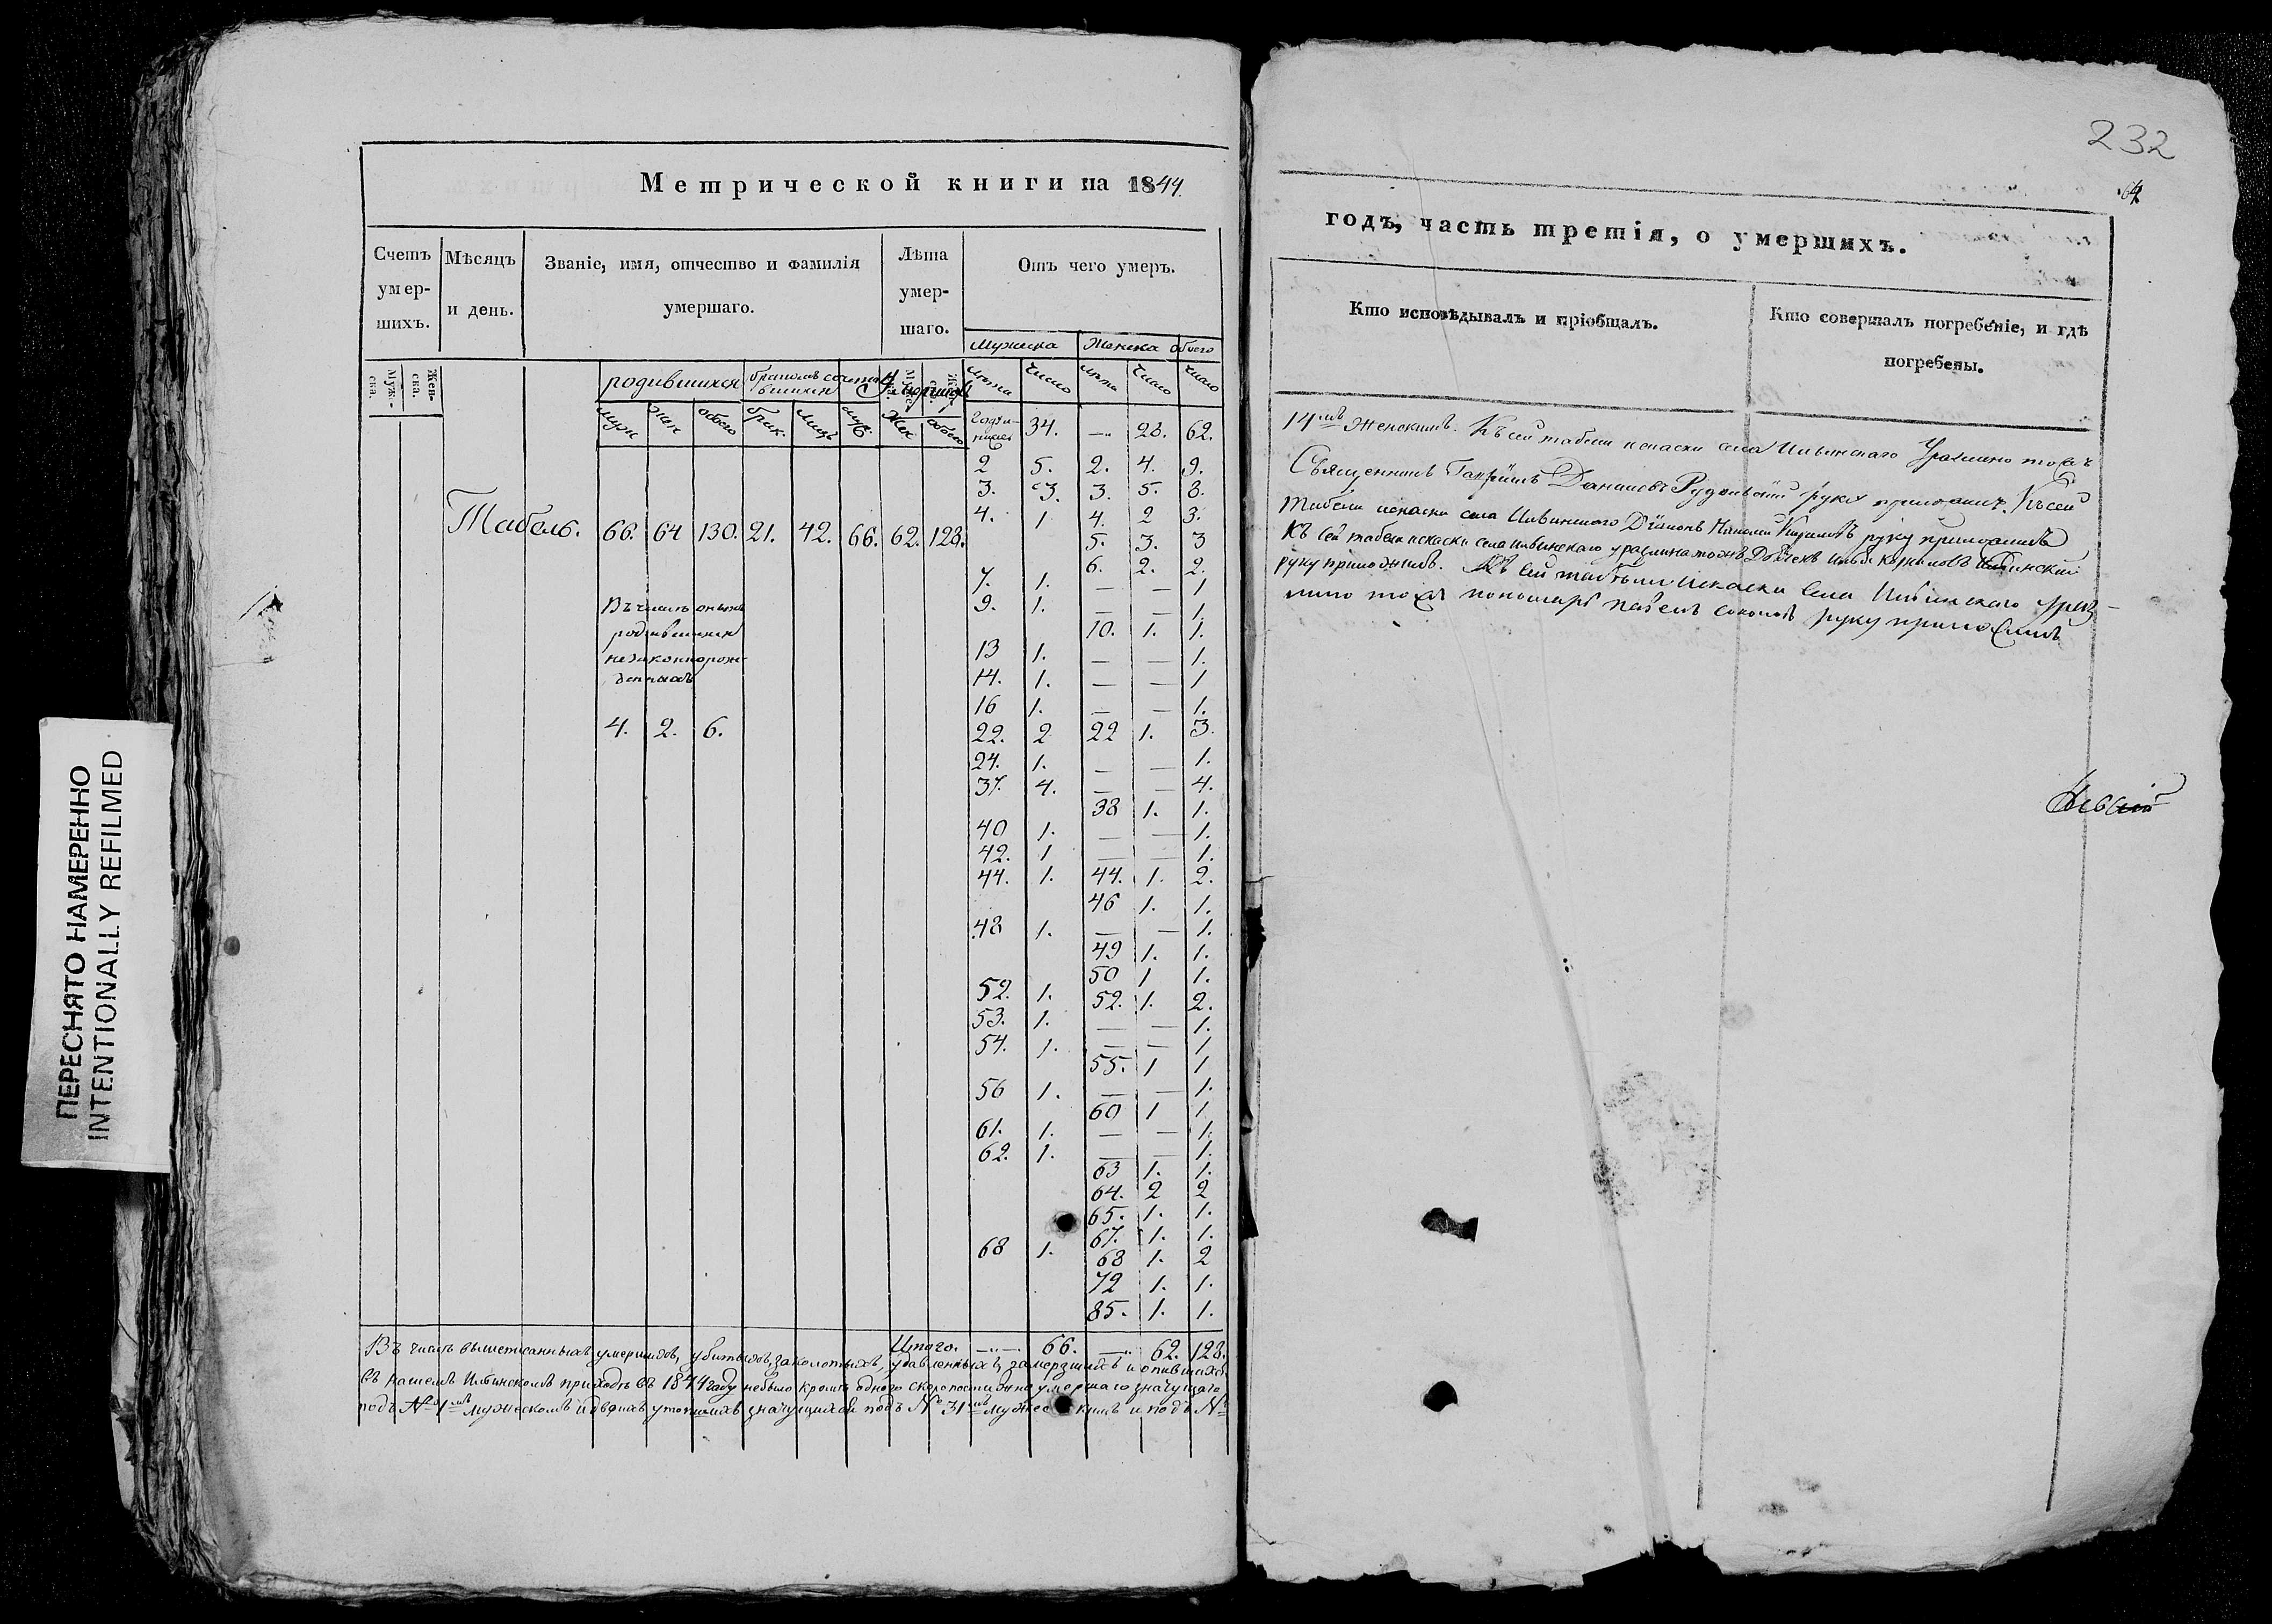 232
64
Метрической книги на 1844.
годъ, часть третія, о умершихъ.
Счетъ умер-шихъ.
Мѣсяцъ и день.
Званіе, имя, отчество и фамилія умершаго.
Лѣта умер-шаго.
Отъ чего умеръ.
Кто исповѣдывалъ и пріобщалъ.
Кто совершалъ погребеніе, и гдѣ погребены.
Муже-ска.
Жен-ска.
Мужеска Женска Обоего
родившихся
лѣта число лѣта число число
муж жен обоего брак. лиц муж жен обоего
34. — 28. 62.
2 5. 2. 4. 9.
3. 3. 3. 5. 8.
4. 1 4. 2 3.
Табель. 66. 64 130. 21. 42. 66. 62. 128.
5. 3. 3
6. 2. 2.
7. 1. — — 1
9. 1. — — 1.
10. 1. 1.
13 1. — — 1.
14. 1. — — 1
16 1. — — 1.
22. 2 22 1. 3.
24. 1. — — 1.
37. 4. — — 4.
38 1. 1.
40 1. — — 1.
42. 1 — — 1.
44. 1. 44. 1. 2.
46 1. 1.
48 1. — — 1.
49 1. 1.
50 1 1.
52. 1. 52. 1. 2.
53. 1. — — 1.
54. 1. — — 1
55. 1 1
56 1. — — 1.
60 1 1
61. 1. — — 1.
62. 1. — — 1.
63 1. 1.
64. 2 2
65. 1. 1.
67. 1. 1.
68 1. 68 1. 2
72 1. 1.
85. 1. 1.
Въ числѣ оныхъ
родившихся
незаконнорож-
денныхъ
4. 2. 6.
Итого. — 66. — 62. 128.
Въ числѣ вышеписанныхъ умершихъ, убитыхъ, заколотыхъ, удавленныхъ, замерзшихъ и опившихся
въ нашемъ Ильинскомъ приходѣ въ 1844 году небыло кромѣ одного скоропостижно умершаго значущаго
подъ № 1мъ мужескомъ и двухъ утопшихъ значущихся подъ № 31мъ мужескимъ и подъ №
14мъ женскимъ. Къ сей табели села Ильинскаго
Священникъ Гавріилъ руку приложилъ. Къ сей
табели села Ильинскаго Діаконъ руку приложилъ
Къ сей табели села Ильинскаго Дьячекъ
руку приложилъ. Къ сей табели села Ильинскаго
пономарь Павелъ руку приложилъ
ПЕРЕСНЯТО НАМЕРЕННО
INTENTIONALLY REFILMED